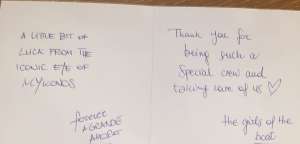 A LITTLE BIT OF
LUCK FROM THE
ICONIC EYE OF
MYKONOS
forever
A GRANDE
AMORE
Thank you for
being such a
special crew and
taking care of us
the girls of the
boat